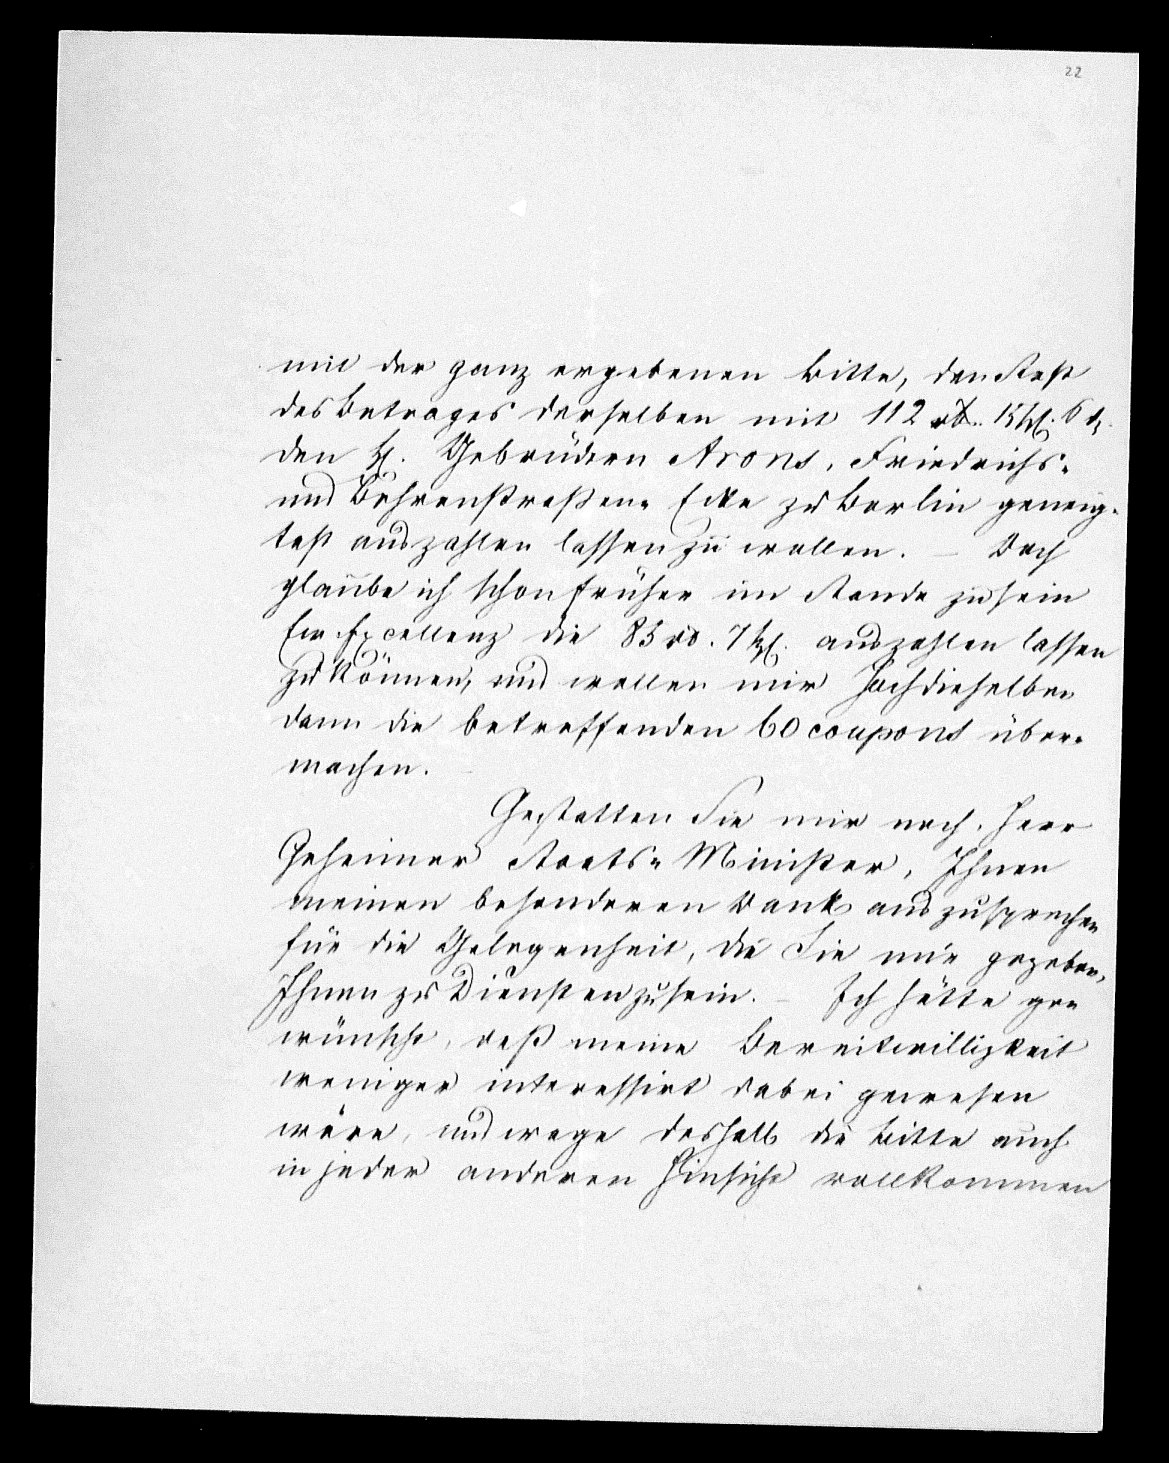 22
mit der ganz ergebenen Bitte, den Rest
des Betrages derselben mit 112 rℓ. 15 Sgr. 6 ₰.
den H. Gebrüdern Arons, Friedrichs-
und Behrenstraßen- Ecke zu Berlin geneig-
test auszahlen lassen zu wollen. – Doch
glaube ich schon früher im Stande zu sein
Ew. Excellenz die 83 rℓ. 7 Sgr. auszahlen lassen
zu können, und wollen mir Hochdieselben
dann die betreffenden 60 coupons über-
machen.
Gestatten Sie mir noch, Herr
Geheimer Staats- Minister, Ihnen
meinen besonderen Dank auszusprechen
für die Gelegenheit, die Sie mir gegeben,
Ihnen zu Diensten zu sein. – Ich hätte ge-
wünscht, daß meine Bereitwilligkeit
weniger interessirt dabei gewesen
wäre, und wage deshalb die Bitte auch
in jeder anderen Hinsicht vollkommen